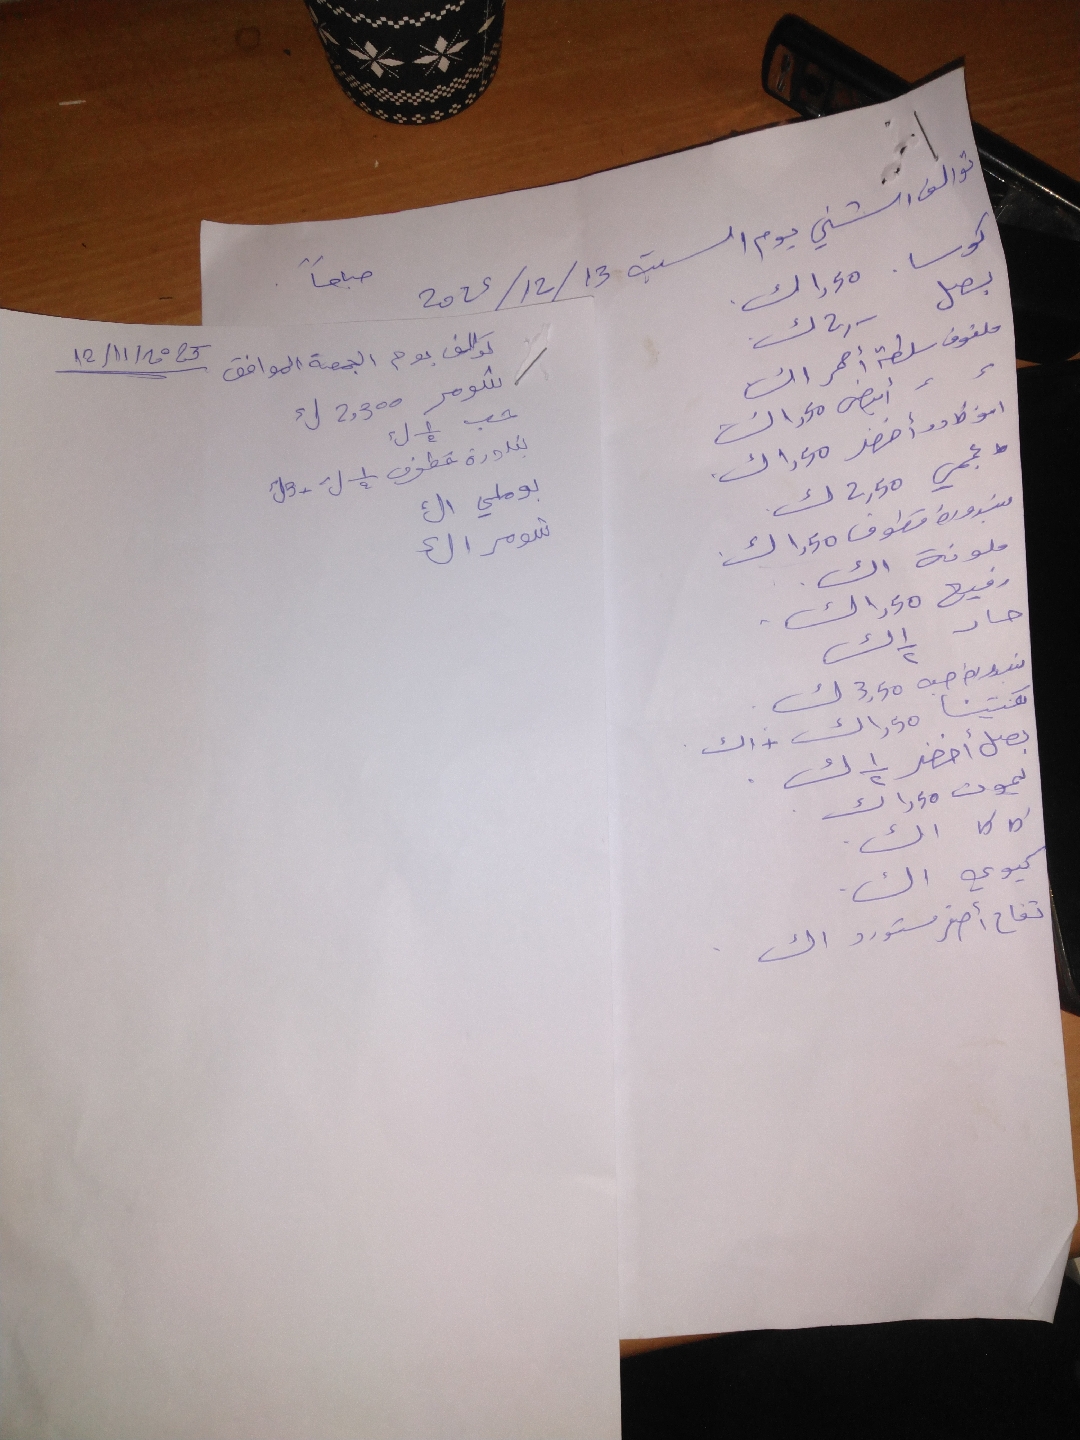 توالف الشني يوم السبت 2025/12/13 صباحاً
كوسا 1,50 ك
بصل 2,- ك
ملفوف سلطة أحمر 1 ك
〃 〃 أبيض 1,50 ك
افوكادو أخضر 1,50 ك
عجمي 2,50 ك
بندورة قطوف 1,50 ك
ملونة 1 ك
رفيع 1,50 ك
حار ½1 ك
بندورة حبه 3,50 ك
كنتينا 1,50 ك + 1 ك
بصل أخضر ½ ك
ليمون 1,50 ك
كاكا 1 ك
كيوي 1 ك
تفاح أصفر مستورد 1 ك
توالف يوم الجمعة الموافق 12/11/2025
شومر 2,300 ك
حب ¼ ك
بندورة قطوف ¼ ك
بوملي 1 ك
شومر 1 ك